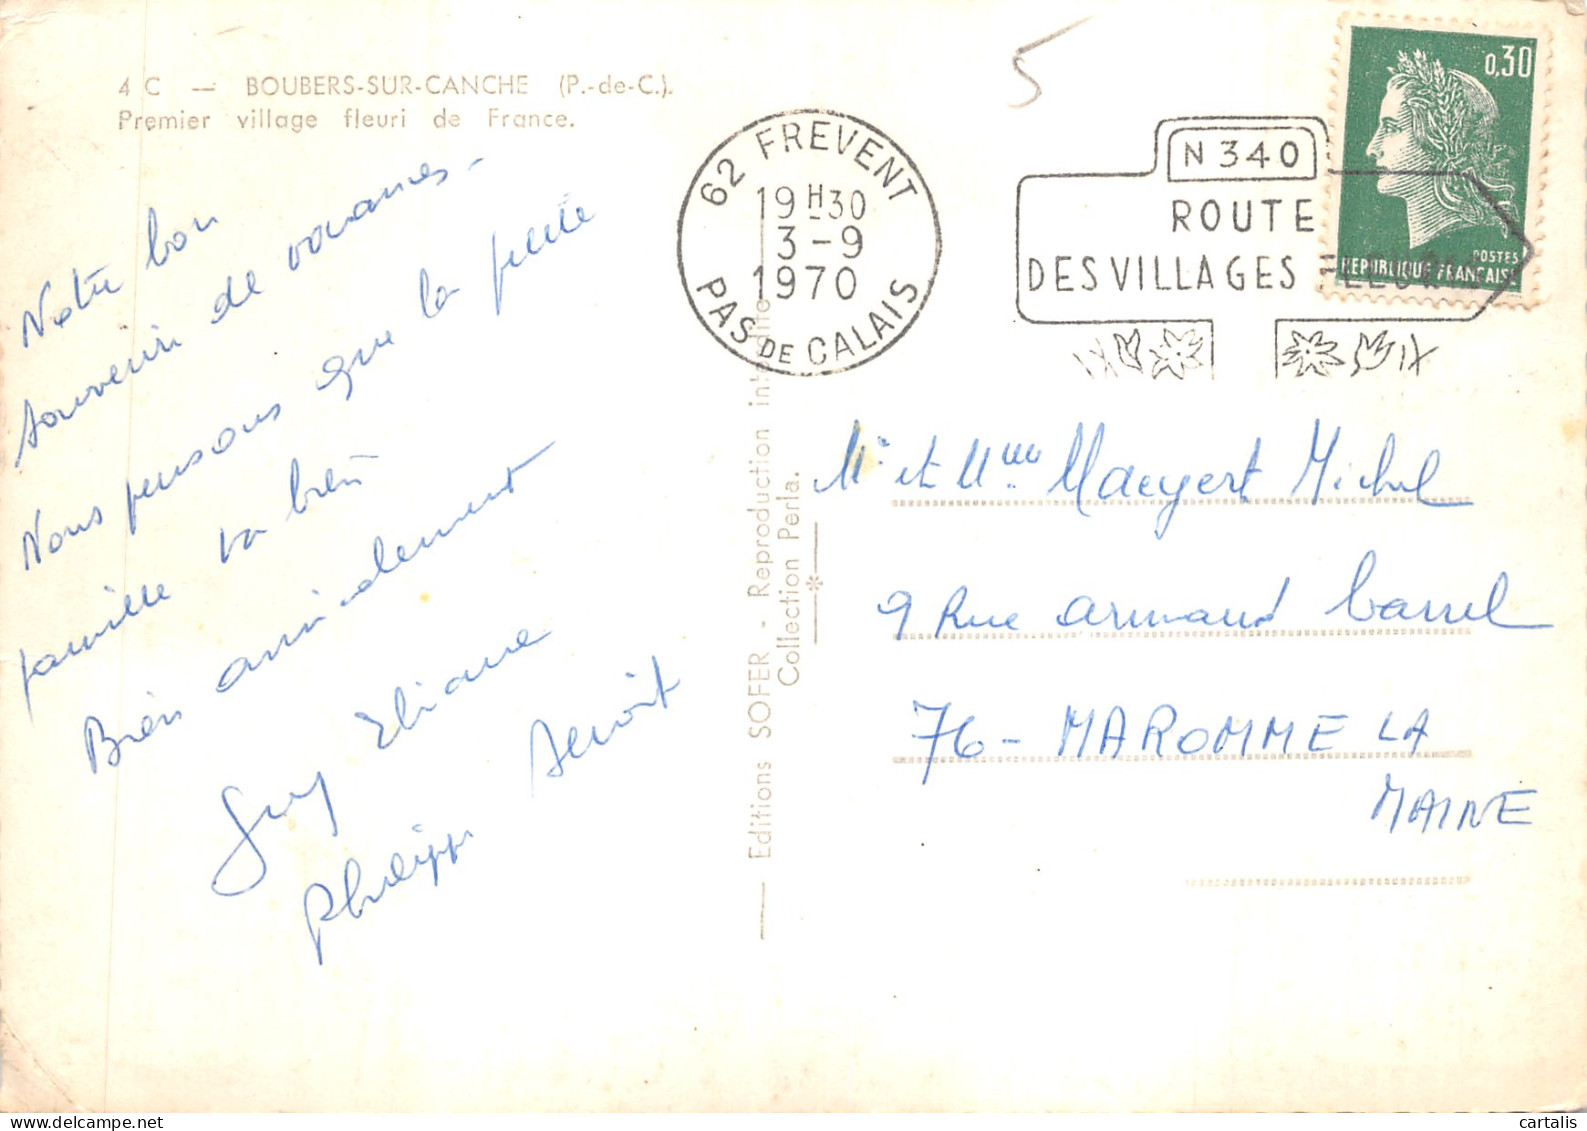 4 C — BOUBERS-SUR-CANCHE (P.-de-C.).
Premier village fleuri de France.
Notre bon
souvenir de vacances -
Nous pensons que la petite
famille va bien
Bien amicalement
Guy Eliane
Philippe Benoit
Editions SOFER - Reproduction interdite
Collection Perla.
5
62 FREVENT
19H30
3-9
1970
PAS DE CALAIS
N 340
ROUTE
DES VILLAGES FLEURIS
0,30
POSTES
REPUBLIQUE FRANÇAISE
Mr et Mme Maeyert Michel
9 Rue Armand Carrel
76 - MAROMME LA
MAINE
cartalis